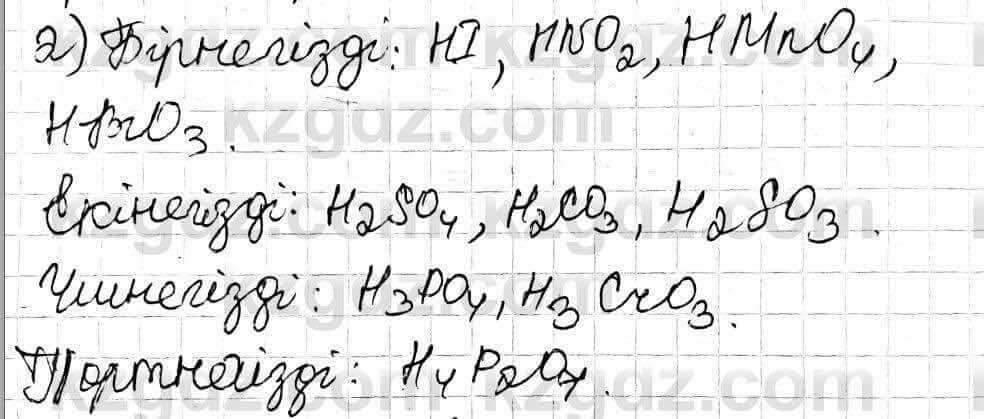 2) Бірнегізді: HI, HNO2, HMnO4,
HBrO3.
Екінегізді: H2SO4, H2CO3, H2SO3.
Үшнегізді: H3PO4, H3CrO3.
Төртнегізді: H4P2O7.
kzgdz.com